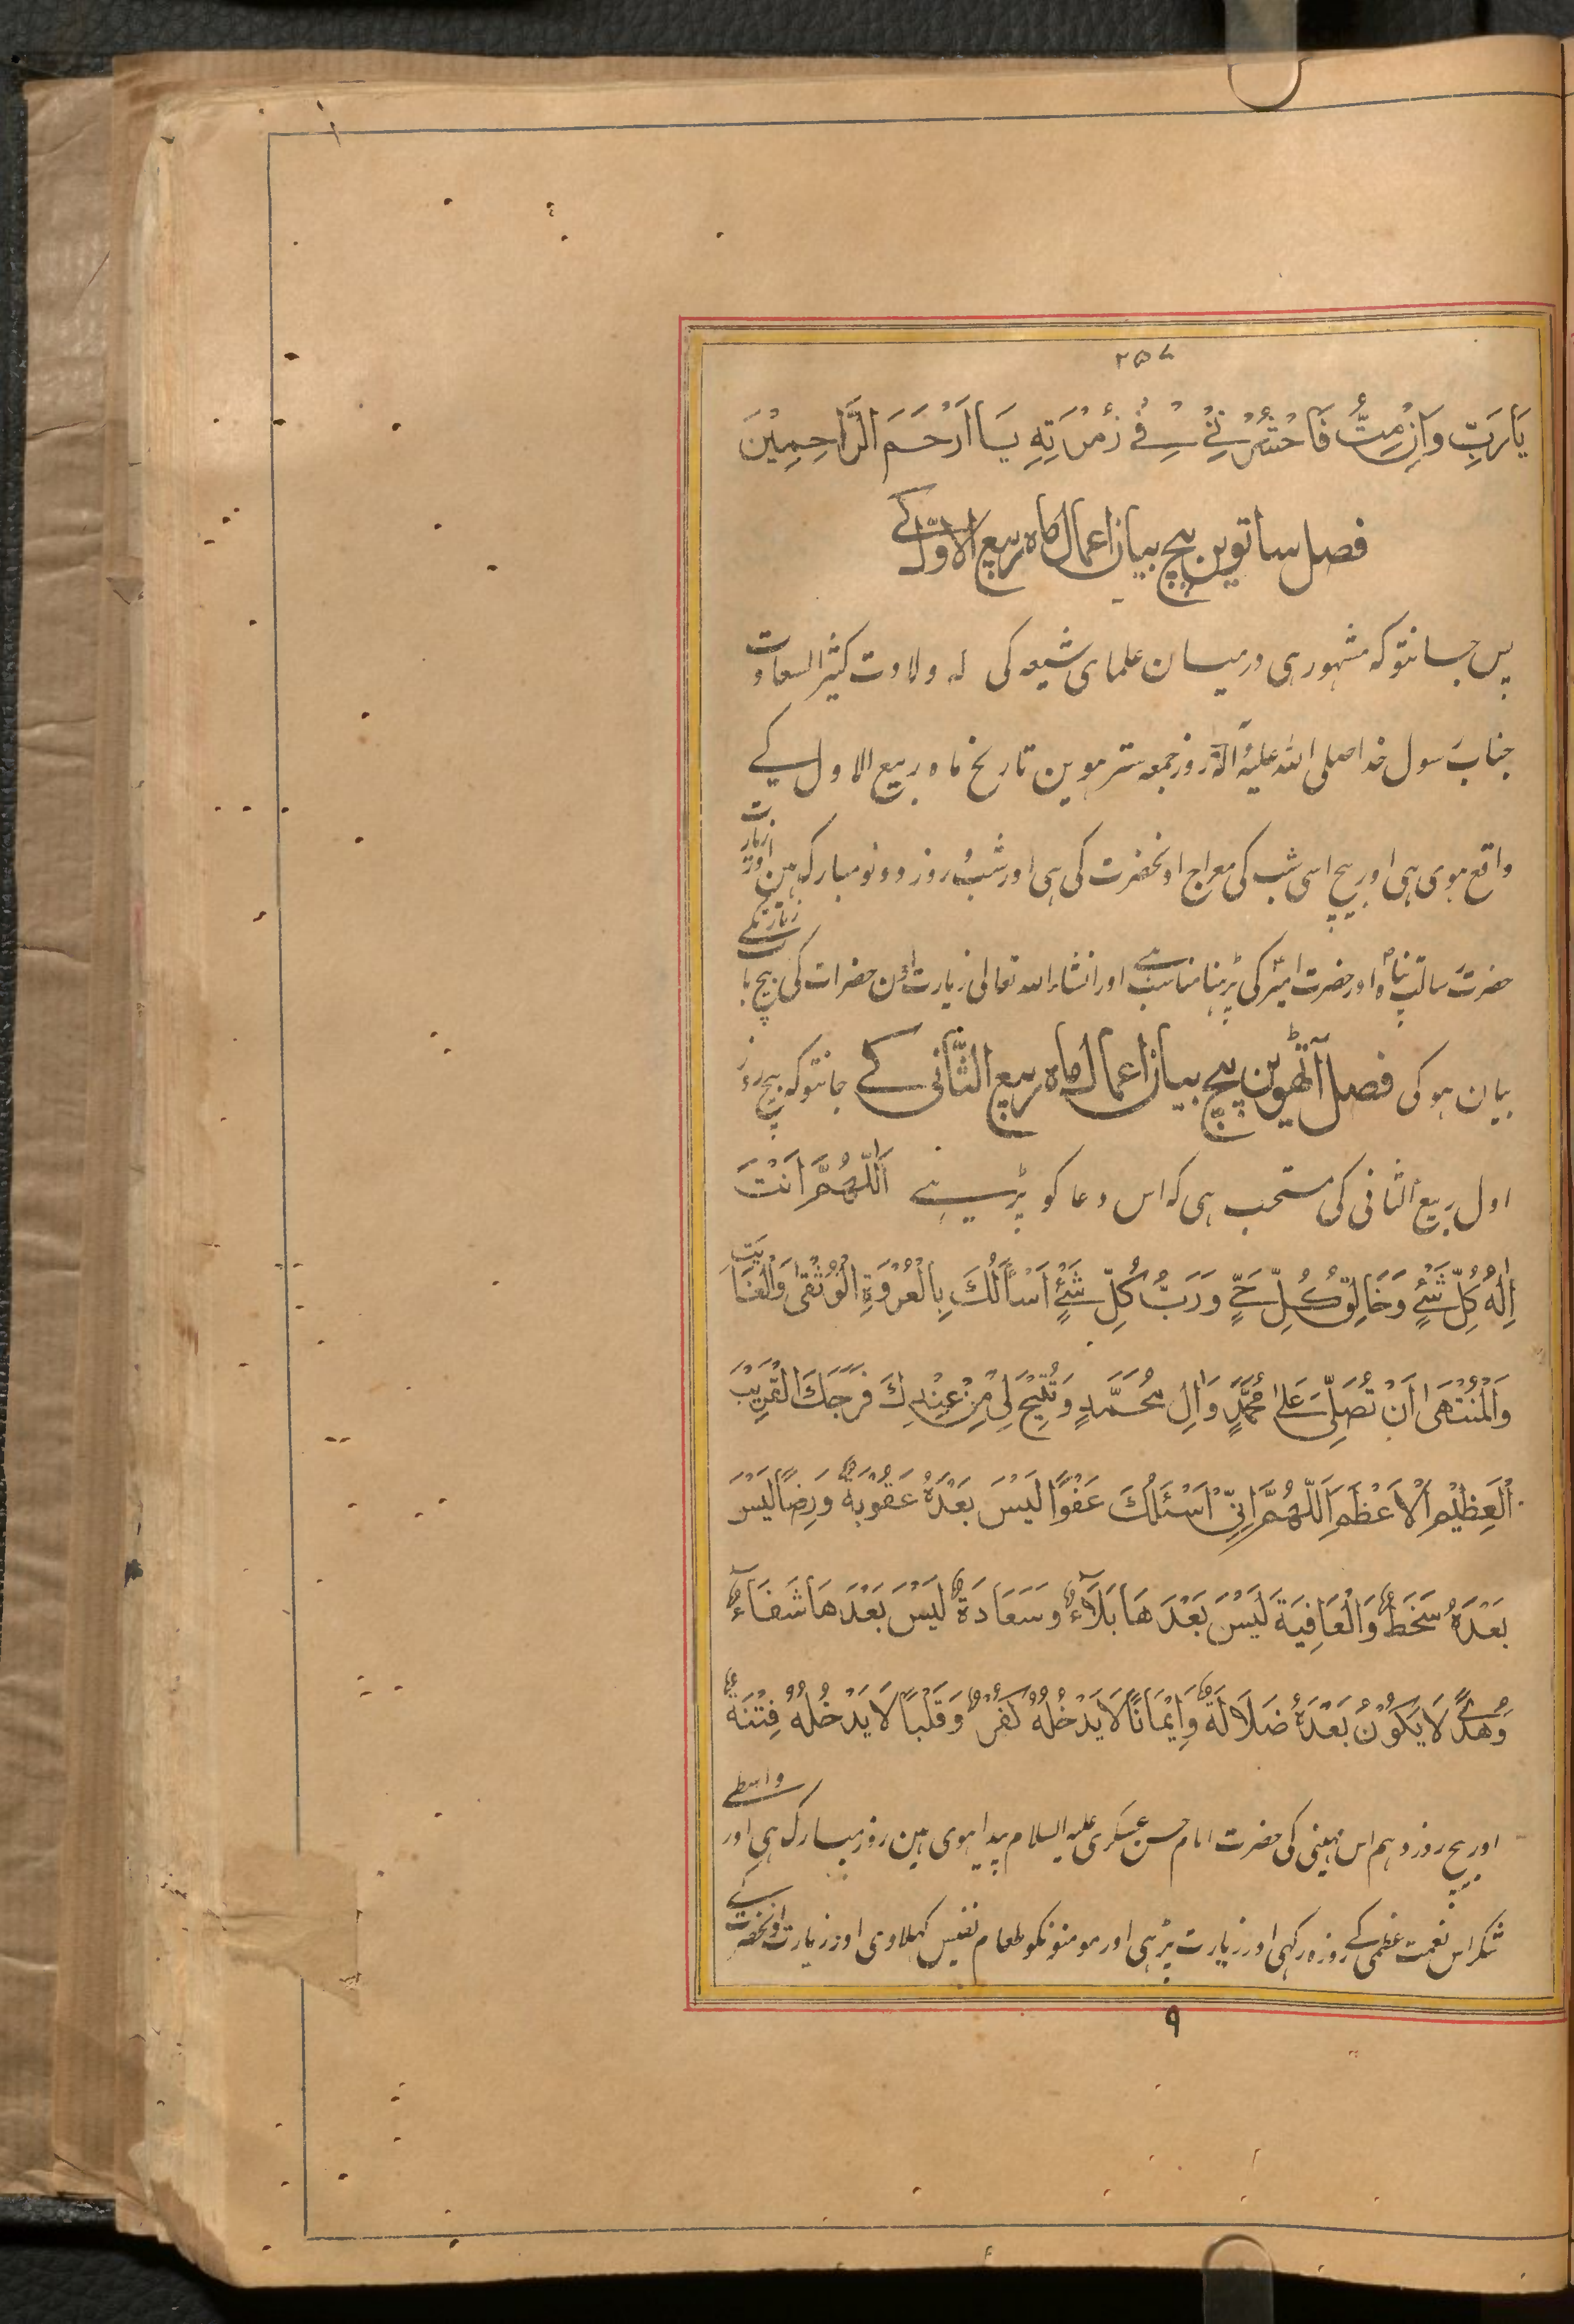 ۲۵۷
يَارَبِّ وَاِنْ مِتُّ فَاحْشُرْنِيْ فِيْ زُمْرَتِهِ يَا اَرْحَمَ الرَّاحِمِيْنَ
فصل ساتوین بیچ بیان اعمال ماہ ربیع الاوّل کے
پس جانتو کہ مشہور ہی درمیان علمای شیعہ کی کہ ولادت کثیر السعادت
جناب رسول خدا صلی اللہ علیہ وآلہ روز جمعہ سترہوین تاریخ ماہ ربیع الاول کے
واقع ہوی ہی اور بیچ اسی شب کی معراج اونحضرت کی ہی اور شب و روز دونو مبارک ہین اور زیارت
حضرت رسالتپناہ اور حضرت امیر کی پڑہنا مناسب ہے اور انشاء اللہ تعالی زیارت اون حضرات کی بیچ باب زیارتکے
بیان ہوکی فصل آٹھوین بیچ بیان اعمال ماہ ربیع الثّانی کے جانتو کہ بیچ روز
اول ربیع الثانی کی مستحب ہی کہ اس دعا کو پڑہے اَللّٰهُمَّ اَنْتَ
اِلٰهُ كُلِّ شَيْءٍ وَخَالِقُ كُلِّ حَيٍّ وَرَبُّ كُلِّ شَيْءٍ اَسْاَلُكَ بِالْعُرْوَةِ الْوُثْقٰى وَالْغَايَةِ
وَالْمُنْتَهٰى اَنْ تُصَلِّيَ عَلٰى مُحَمَّدٍ وَاٰلِ مُحَمَّدٍ وَتُتِيْحَ لِيْ مِنْ عِنْدِكَ فَرَجَكَ الْقَرِيْبَ
الْعَظِيْمَ الْاَعْظَمَ اَللّٰهُمَّ اِنِّيْ اَسْئَلُكَ عَفْوًا لَيْسَ بَعْدَهُ عَقُوْبَةٌ وَرِضًا لَيْسَ
بَعْدَهُ سَخَطٌ وَالْعَافِيَةَ لَيْسَ بَعْدَهَا بَلَآءٌ وَسَعَادَةً لَيْسَ بَعْدَهَا شَقَاءٌ
وَهُدًى لَا يَكُوْنُ بَعْدَهُ ضَلَالَةٌ وَاِيْمَانًا لَا يَدْخُلُهُ كُفْرٌ وَقَلْبًا لَا يَدْخُلُهُ فِتْنَةٌ
اور بیچ روز دہم اس مہینی کی حضرت امام حسن عسکری علیہ السلام پیدا ہوی ہین روز مبارک ہی اور واسطے
شکر اس نعمت عظمی کے روزہ رکہی اور زیارت پڑہی اور مومنونکو طعام نفیس کہلاوی اور زیارت اونحضرت کے
۹